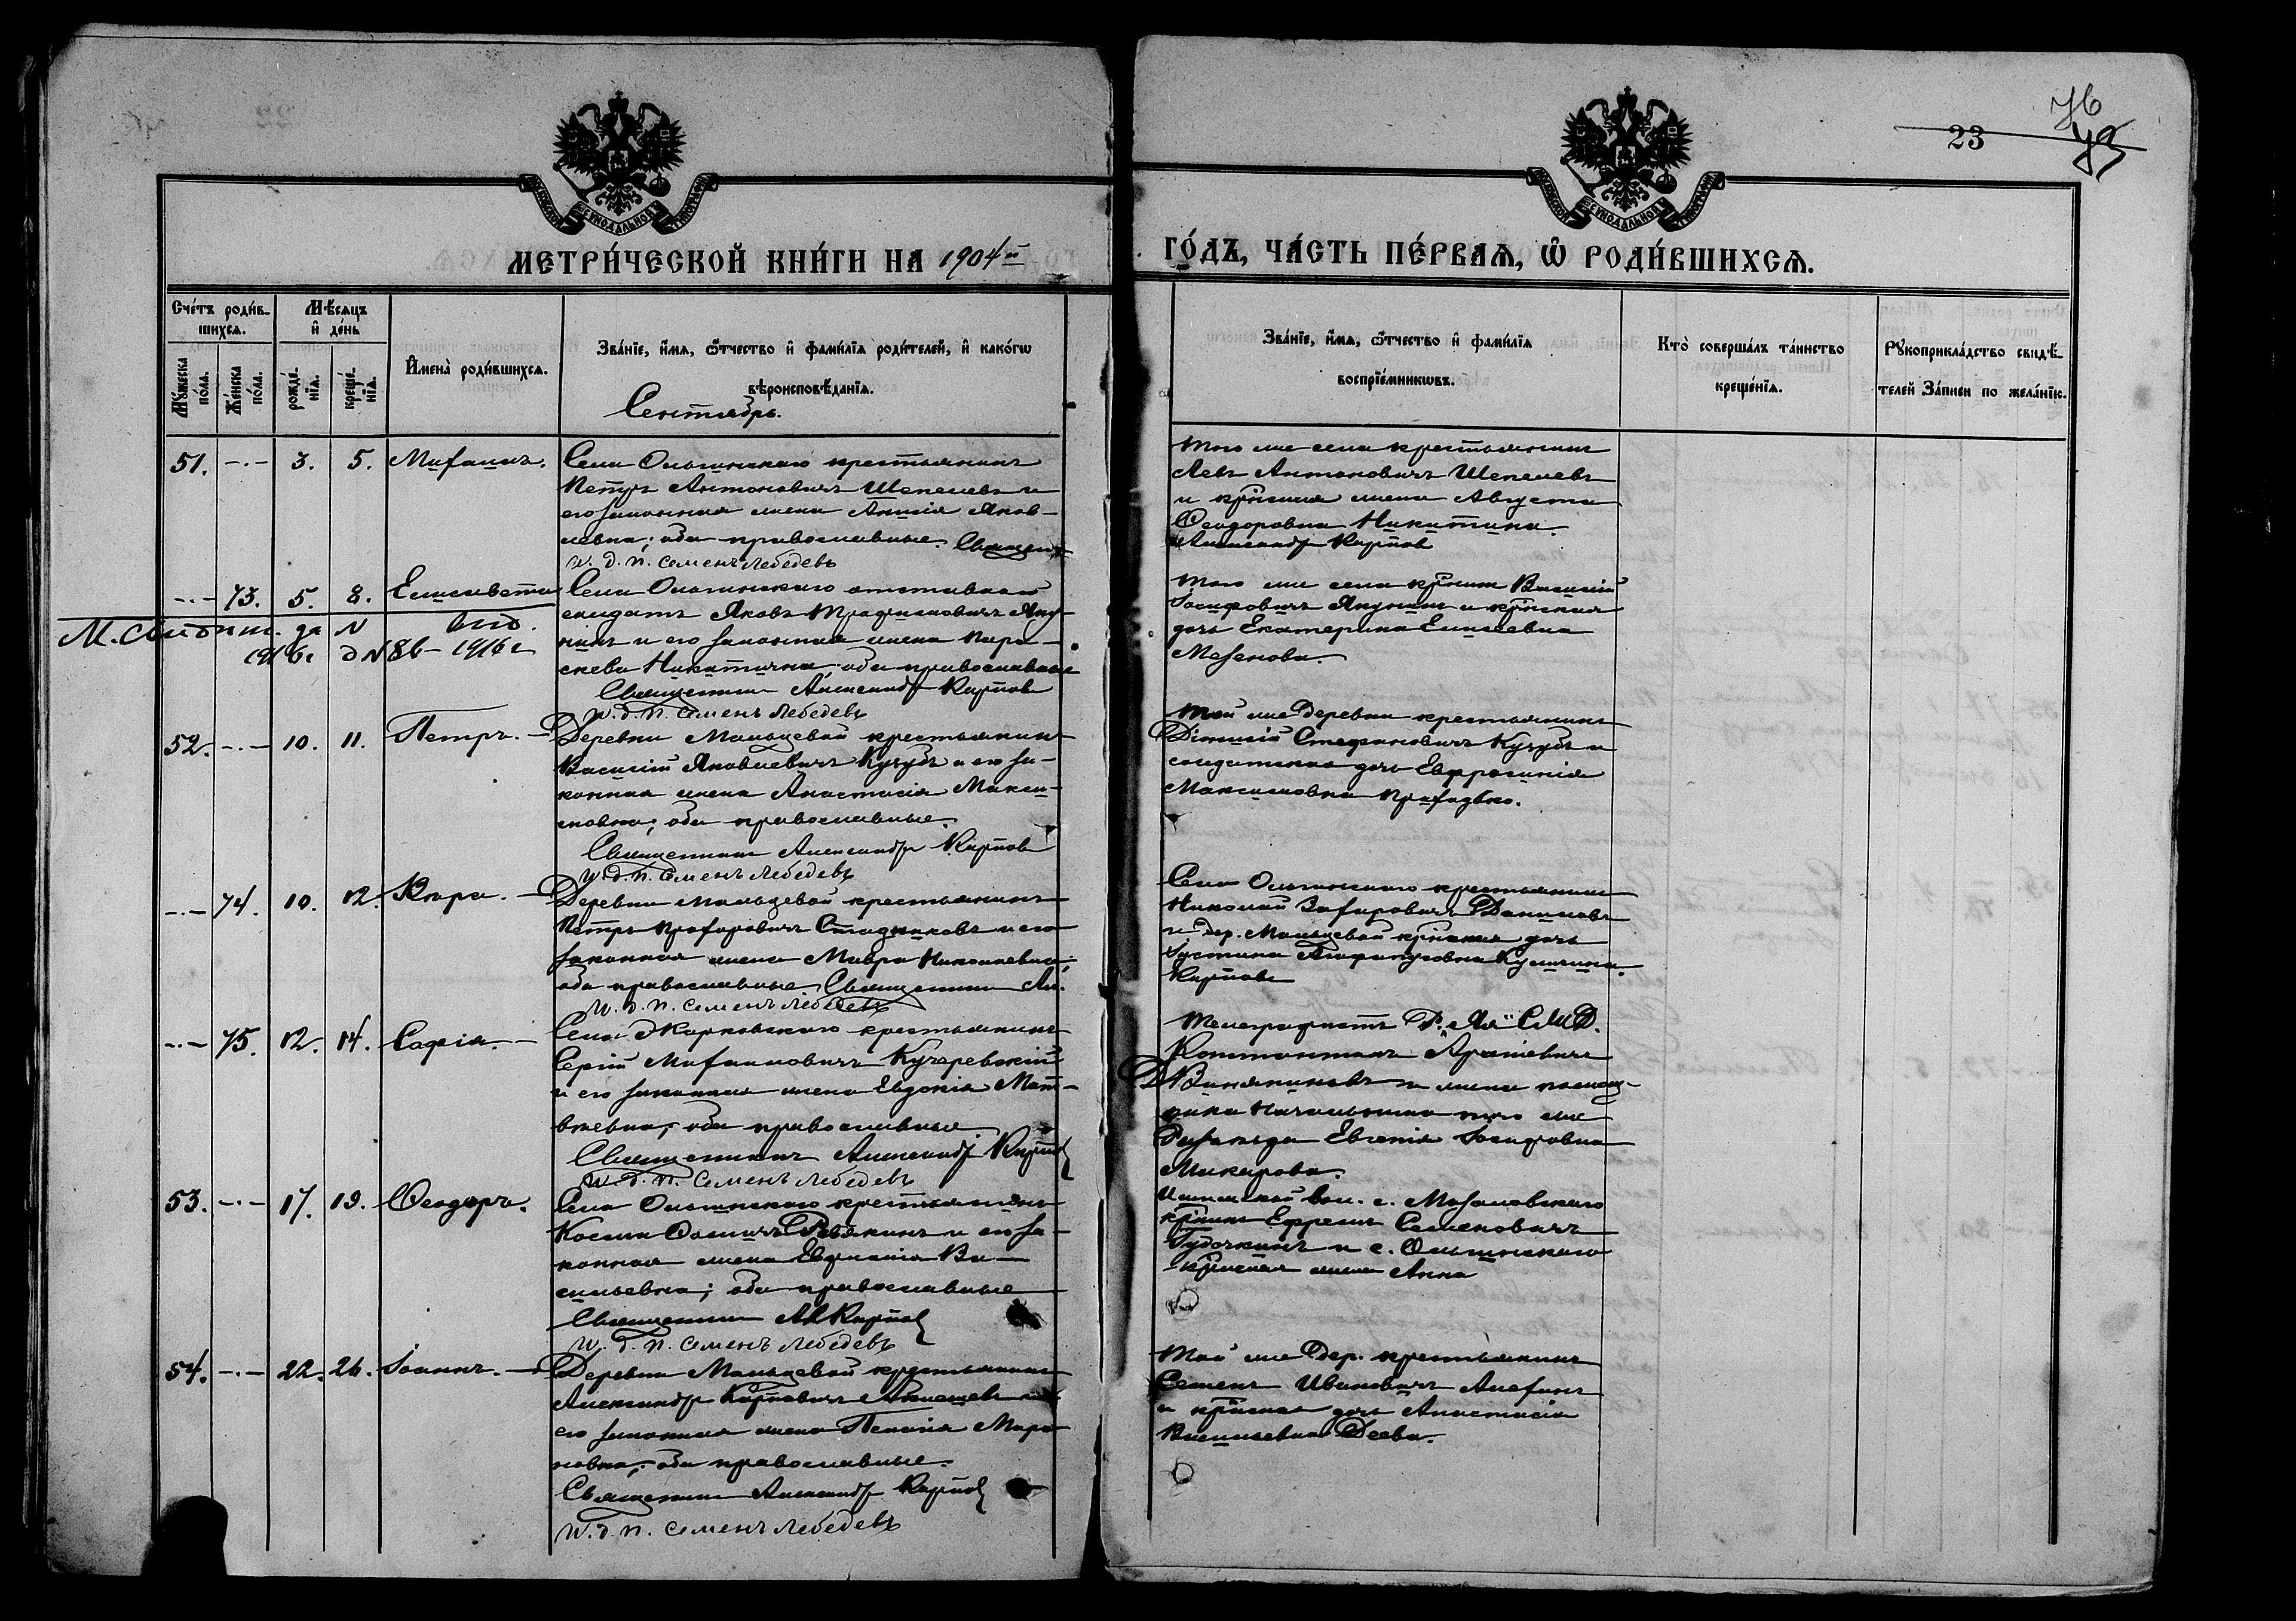 76
23
75
МЕТРИ́ЧЕСКОЙ КНИ́ГИ НА 1904й
ГО́ДЪ, ЧА́СТЬ ПЕ́РВАѦ, Ѡ҆ РОДИ́ВШИХСѦ.
Сче́тъ роди́в-
шихсѧ.
Мꙋ́жеска по́ла.
Же́нска по́ла.
Мѣ́сѧцъ
и҆ де́нь
рожде́-
нїѧ.
креще́-
нїѧ.
И҆мена̀ роди́вшихсѧ.
Зва́нїе, и҆́мѧ, ѻ҆́тчество и҆ фами́лїѧ роди́телей, и҆ како́гѡ
вѣроисповѣ́данїѧ.
Сентябрь.
Зва́нїе, и҆́мѧ, ѻ҆́тчество и҆ фами́лїѧ
воспрїе́мникѡвъ.
Кто̀ соверша́лъ та́инство
креще́нїѧ.
Рꙋкоприкла́дство свидѣ́-
телей за́писи по жела́нїю.
51. -·- 3. 5. Михаилъ.
Села Ольгинскаго крестьянинъ
Петръ Антоновичъ Шепелевъ и
его законная жена Анисія Яков-
левна; оба православные. Священ
и. д. п. Семенъ Лебедевъ
Того же села крестьянинъ
Левъ Антоновичъ Шепелевъ
и крская жена Августа
Ѳеодоровна Никитина.
Александръ Карпов
-·- 73. 5. 8. Елисавета
Села Ольгинскаго отставной
солдатъ Яковъ Трофимовичъ Яку
нинъ и его законная жена Пара-
скева Никитична; оба православные
Священникъ Александръ Карпов
и. д. п. Семенъ Лебедевъ
1916 г. № 86 1916 г
Того же села крнинъ Василій
Іосифовичъ Якунинъ и крнская
дочь Екатерина Елисеевна
52. -·- 10. 11. Петръ.
Деревни Мальцевой крестьянинъ
Василій Яковлевичъ Кучубъ и его за-
конная жена Анастасія Макси-
мовна; оба православные.
Священникъ Александръ Карпов
и. д. п. Семенъ Лебедевъ
Той же деревни крестьянинъ
Діонисій Стефановичъ Кучубъ и
солдатская дочь Евфросинія
Максимовна
-·- 74. 10. 12.
Деревни Мальцевой крестьянинъ
Петръ Стадниковъ и его
законная жена Мавра Николаевна;
оба православные. Священникъ Ал.
и. д. п. Семенъ Лебедевъ
Села Ольгинскаго крестьянинъ
Николай Захаровичъ Даниловъ
и дер. Мальцевой крнская дочь
Іустина
Карпов
-·- 75. 12. 14. Софія.
крестьянинъ
Сергій Михаиловичъ Кучеревскій
и его законная жена Евдокія Мат-
вѣевна; оба православные
Священникъ Александръ Карпов
и. д. п. Семенъ Лебедевъ
Телеграфистъ
Константинъ
и жена помощ-
ника Начальника того же
разъезда Евгенія Іосифовна
Макарова.
53. -·- 17. 19. Ѳеодоръ.
Села Ольгинскаго крестьянинъ
Косма и его за-
конная жена Ва-
сильевна; оба православные
Священникъ Ал Карпов
и. д. п. Семенъ Лебедевъ
вол. с.
крнинъ Ефремъ Семеновичъ
и с. Ольгинскаго
крнская жена Анна
54. -·- 22. 26. Іоаннъ.
Деревни Мальцевой крестьянинъ
Александръ Карповичъ
его законная жена Пелагія Миро
новна; оба православные.
Священникъ Александръ Карпов
и. д. п. Семенъ Лебедевъ
Той же дер. крестьянинъ
Семенъ Ивановичъ
и крнская дочь Анастасія
Васильевна Деева.